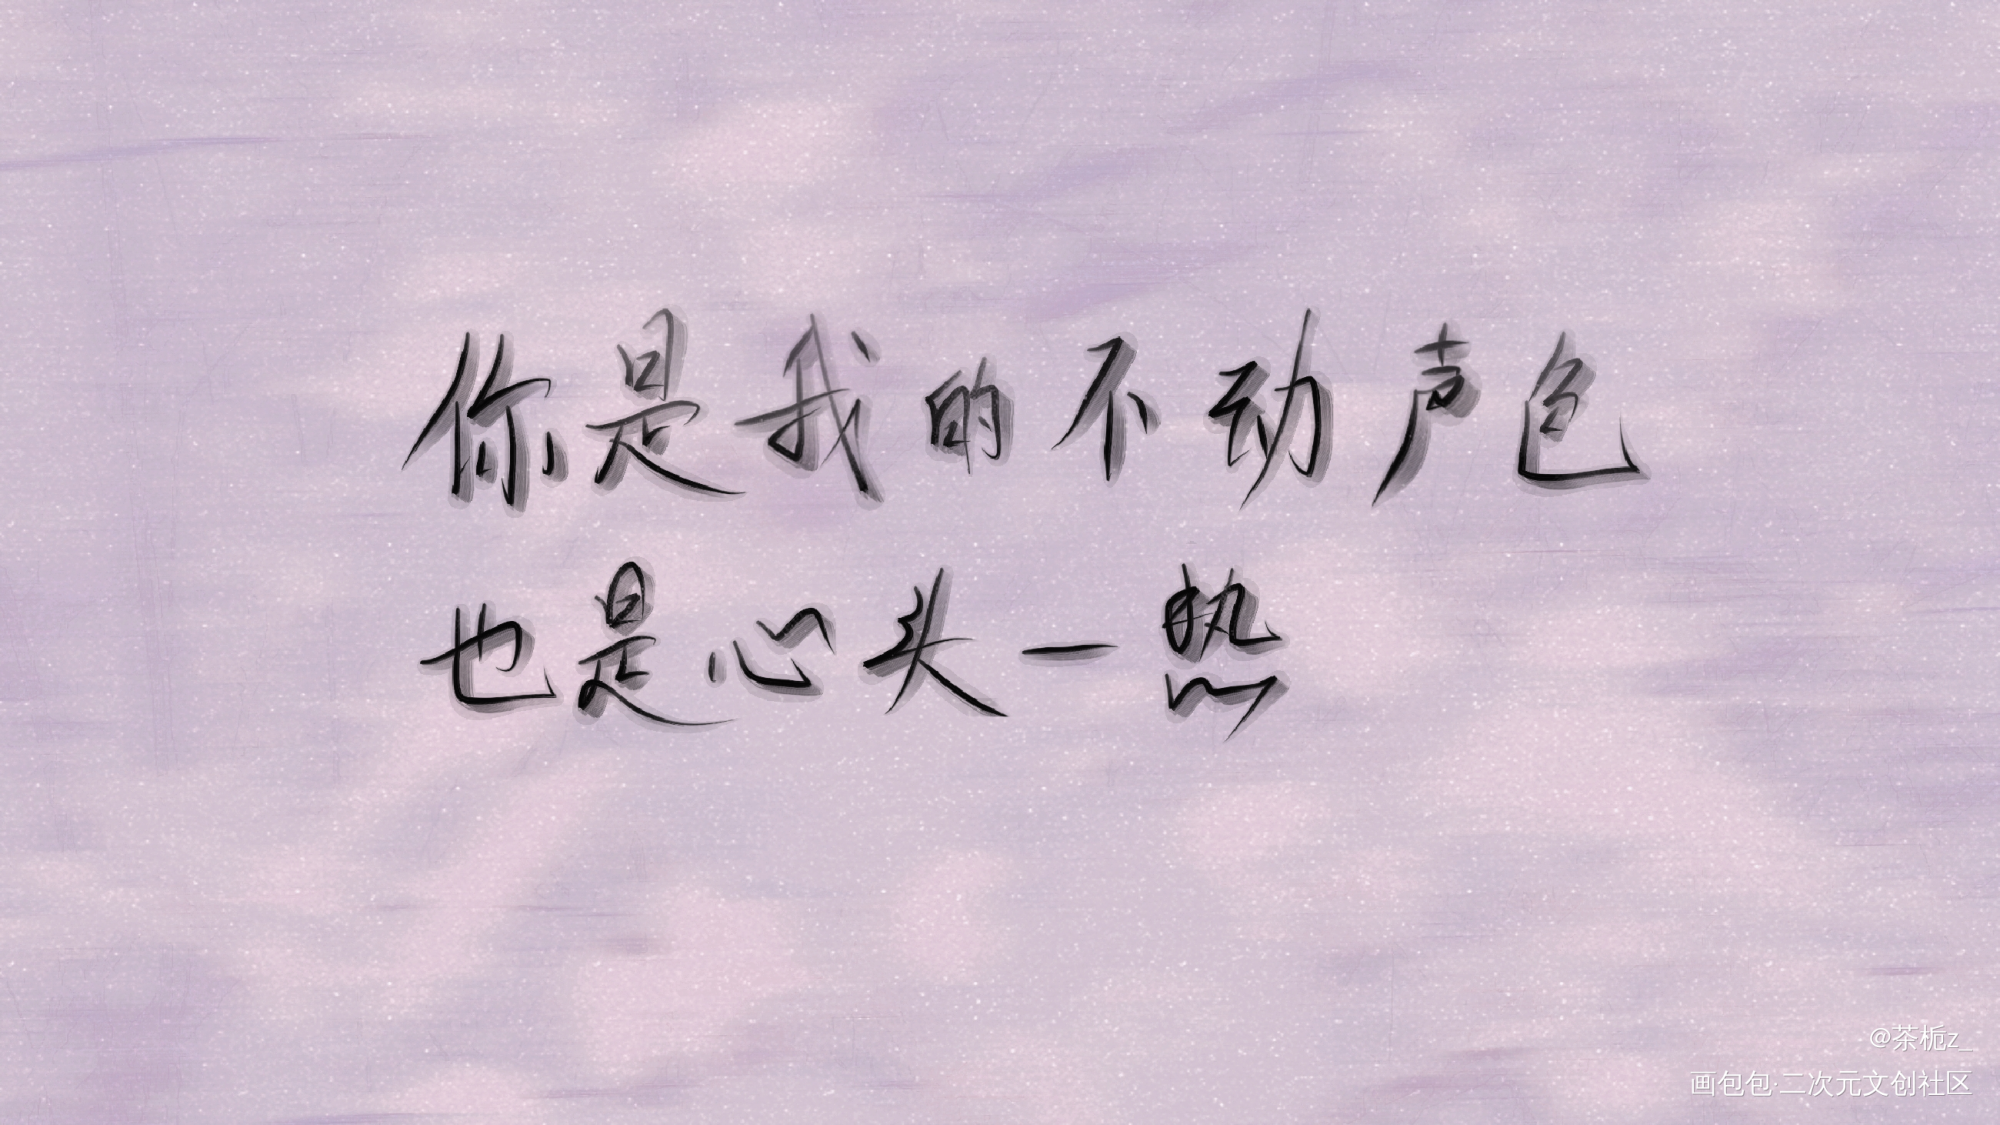 你是我的不动声色
也是心头一热
@茶栀z_
画包包·二次元文创社区